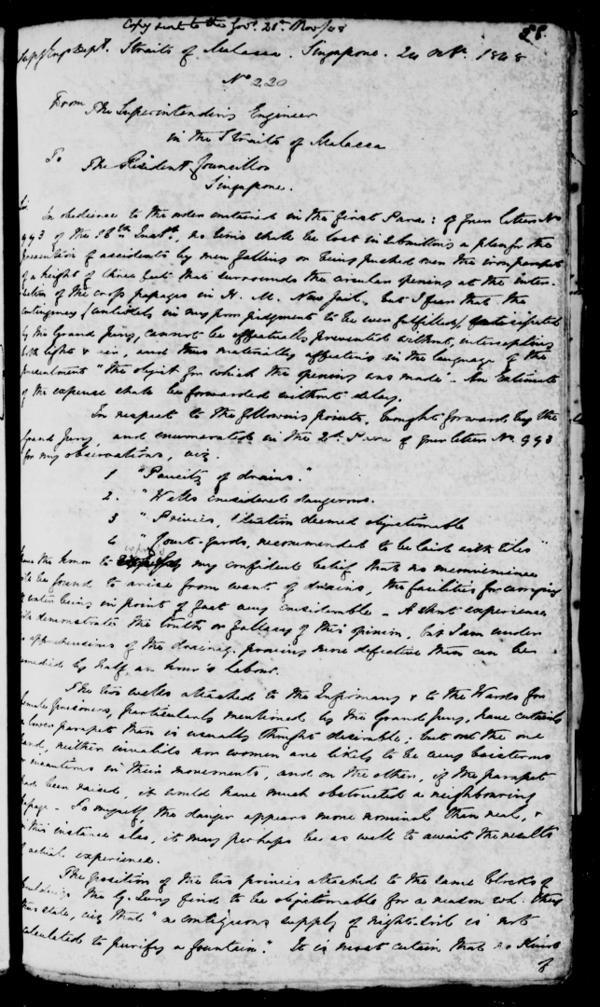 Copy sent to the Govr. 28th Nov/48
88.
Supg. Engrs. Dept. Straits of Malacca. Singapore. 24 Octr. 1848
No 220
From The Superintending Engineer
in the Straits of Malacca
To The Resident Councillor
Singapore.
Sir
In obedience to the orders contained in the first Para: of your letter No
993 of the 16th Instt, no time shall be lost in submitting a plan for the
prevention of accidents by men falling or being pushed over the iron parapet
of a height of three feet that surrounds the circular opening at the inter-
section of the cross passages in H. M. New Jail, but I fear that the
contingency (unlikely in my poor judgment to be ever fulfilled) anticipated
by the Grand Jury, cannot be effectually prevented without intercepting
both light & air, and thus materially affecting in the language of the
presentment "the object for which the opening was made". An Estimate
of the expense shall be forwarded without delay.
In respect to the following points, brought forward by the
Grand Jury, and enumerated in the 2d. Para of your letter No. 993
for my observations, viz.
1 "Paucity of drains."
2. "Wells considered dangerous.
3 "Privies, situation deemed objectionable
4 "Court-yards, recommended to be laid with tiles"
have the honor to express my confident belief that no inconvenience
will be found to arise from want of drains, the facilities for carrying
off water being in point of fact very considerable. A short experience
will demonstrate the truth or fallacy of this opinion, but I am under
no apprehensions of the drainage proving more defective than can be
remedied by half an hour's labour.
The two wells attached to the Infirmary & to the Wards for
female prisoners, particularly mentioned by the Grand Jury, have certainly
a lower parapet than is usually thought desirable; but on the one
hand, neither invalids nor women are likely to be very boisterous
or incautious in their movements, and on the other, if the parapet
had been raised, it would have much obstructed a neighbouring
passage. To myself, the danger appears more nominal than real, &
in this instance also, it may perhaps be as well to await the results
of actual experience.
The position of the two privies attached to the same blocks of
buildings the G. Jury find to be objectionable for a reason wh. they
thus state, viz that "a contiguous supply of night-soil is not
calculated to purify a fountain." It is most certain that no kind
of